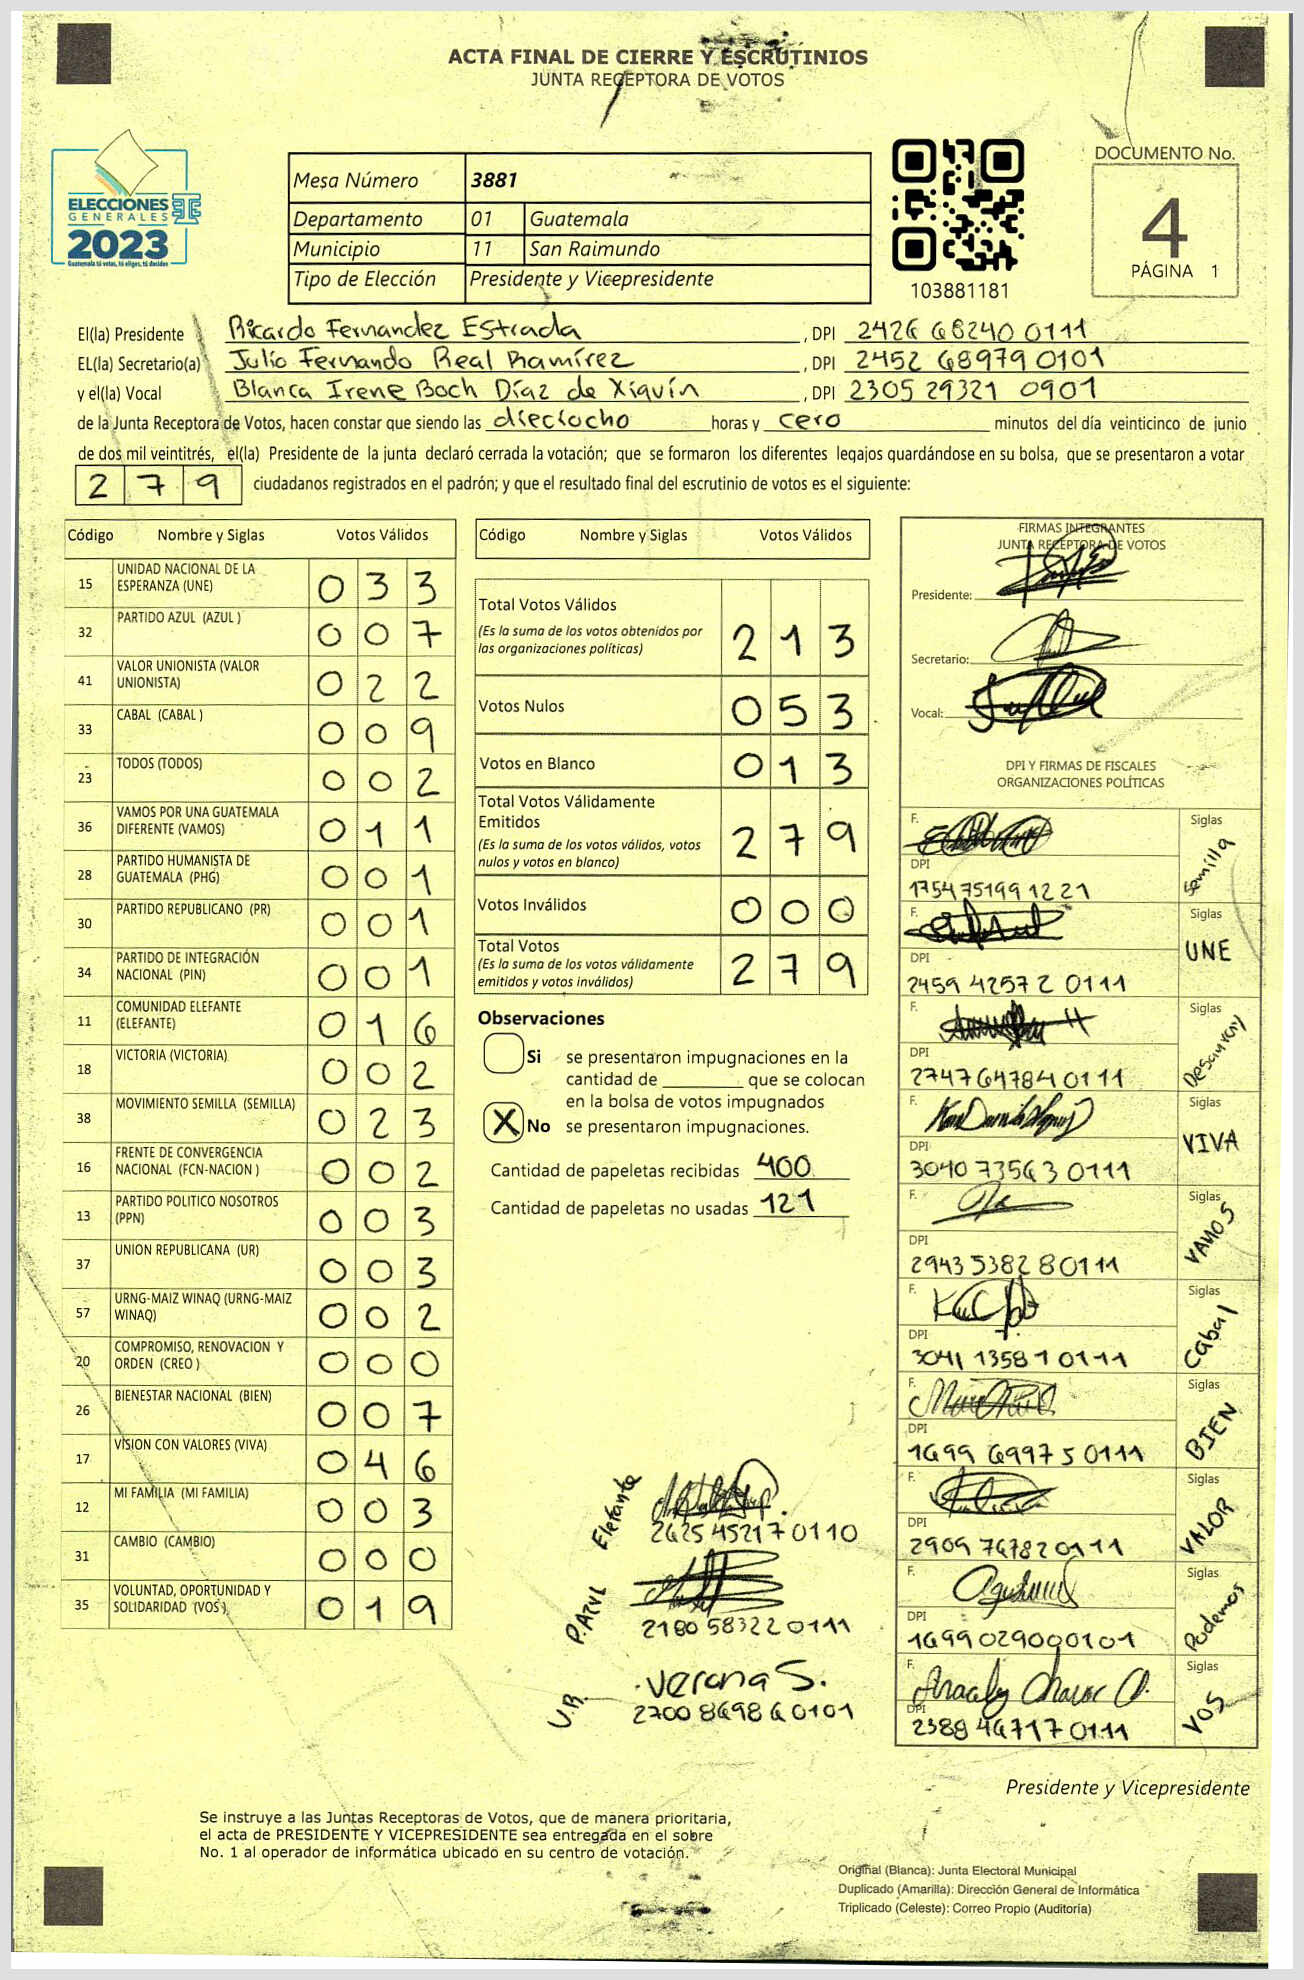 ACTA FINAL DE CIERRE Y ESCRUTINIOS
JUNTA RECEPTORA DE VOTOS
ELECCIONES
GENERALES
2023
Guatemala tú votas, tú eliges, tú decides
Mesa Número 3881
Departamento 01 Guatemala
Municipio 11 San Raimundo
Tipo de Elección Presidente y Vicepresidente
103881181
DOCUMENTO No.
4
PÁGINA 1
El(la) Presidente Ricardo Fernandez Estrada, DPI 2426 68240 0111
EL(la) Secretario(a) Julio Fernando Real Ramírez, DPI 2452 68979 0101
y el(la) Vocal Blanca Irene Boch Díaz de Xiquín, DPI 2305 29321 0901
de la Junta Receptora de Votos, hacen constar que siendo las dieciocho horas y cero minutos del día veinticinco de junio
de dos mil veintitrés, el(la) Presidente de la junta declaró cerrada la votación; que se formaron los diferentes legajos guardándose en su bolsa, que se presentaron a votar
2 7 9 ciudadanos registrados en el padrón; y que el resultado final del escrutinio de votos es el siguiente:
Código Nombre y Siglas Votos Válidos
15 UNIDAD NACIONAL DE LA ESPERANZA (UNE) 0 3 3
32 PARTIDO AZUL (AZUL ) 0 0 7
41 VALOR UNIONISTA (VALOR UNIONISTA) 0 2 2
33 CABAL (CABAL ) 0 0 9
23 TODOS (TODOS) 0 0 2
36 VAMOS POR UNA GUATEMALA DIFERENTE (VAMOS) 0 1 1
28 PARTIDO HUMANISTA DE GUATEMALA (PHG) 0 0 1
30 PARTIDO REPUBLICANO (PR) 0 0 1
34 PARTIDO DE INTEGRACIÓN NACIONAL (PIN) 0 0 1
11 COMUNIDAD ELEFANTE (ELEFANTE) 0 1 6
18 VICTORIA (VICTORIA) 0 0 2
38 MOVIMIENTO SEMILLA (SEMILLA) 0 2 3
16 FRENTE DE CONVERGENCIA NACIONAL (FCN-NACION ) 0 0 2
13 PARTIDO POLITICO NOSOTROS (PPN) 0 0 3
37 UNION REPUBLICANA (UR) 0 0 3
57 URNG-MAIZ WINAQ (URNG-MAIZ WINAQ) 0 0 2
20 COMPROMISO, RENOVACION Y ORDEN (CREO ) 0 0 0
26 BIENESTAR NACIONAL (BIEN) 0 0 7
17 VISION CON VALORES (VIVA) 0 4 6
12 MI FAMILIA (MI FAMILIA) 0 0 3
31 CAMBIO (CAMBIO) 0 0 0
35 VOLUNTAD, OPORTUNIDAD Y SOLIDARIDAD (VOS ) 0 1 9
Código Nombre y Siglas Votos Válidos
Total Votos Válidos
(Es la suma de los votos obtenidos por
las organizaciones políticas) 2 1 3
Votos Nulos 0 5 3
Votos en Blanco 0 1 3
Total Votos Válidamente
Emitidos
(Es la suma de los votos válidos, votos
nulos y votos en blanco) 2 7 9
Votos Inválidos 0 0 0
Total Votos
(Es la suma de los votos válidamente
emitidos y votos inválidos) 2 7 9
Observaciones
Si se presentaron impugnaciones en la
cantidad de ________ que se colocan
en la bolsa de votos impugnados
X No se presentaron impugnaciones.
Cantidad de papeletas recibidas 400
Cantidad de papeletas no usadas 121
Elefante
2625 45217 0110
P. Azul
2180 58322 0111
U.R. Verona S.
2700 86986 0101
FIRMAS INTEGRANTES
JUNTA RECEPTORA DE VOTOS
Presidente:
Secretario:
Vocal:
DPI Y FIRMAS DE FISCALES
ORGANIZACIONES POLÍTICAS
F. Siglas Semilla
DPI
1754 75199 1221
F. Siglas UNE
DPI
2459 42572 0111
F. Siglas
DPI
2747 64784 0111
F. Siglas VIVA
DPI
3040 73563 0111
F. Siglas VAMOS
DPI
2943 53828 0111
F. Siglas Cabal
DPI
3041 13581 0111
F. Siglas BIEN
DPI
1699 69975 0111
F. Siglas VALOR
DPI
2909 76782 0111
F. Siglas Podemos
DPI
1699 02900 0101
F. Siglas VOS
DPI
2388 46717 0111
Presidente y Vicepresidente
Se instruye a las Juntas Receptoras de Votos, que de manera prioritaria,
el acta de PRESIDENTE Y VICEPRESIDENTE sea entregada en el sobre
No. 1 al operador de informática ubicado en su centro de votación.
Original (Blanca): Junta Electoral Municipal
Duplicado (Amarilla): Dirección General de Informática
Triplicado (Celeste): Correo Propio (Auditoría)